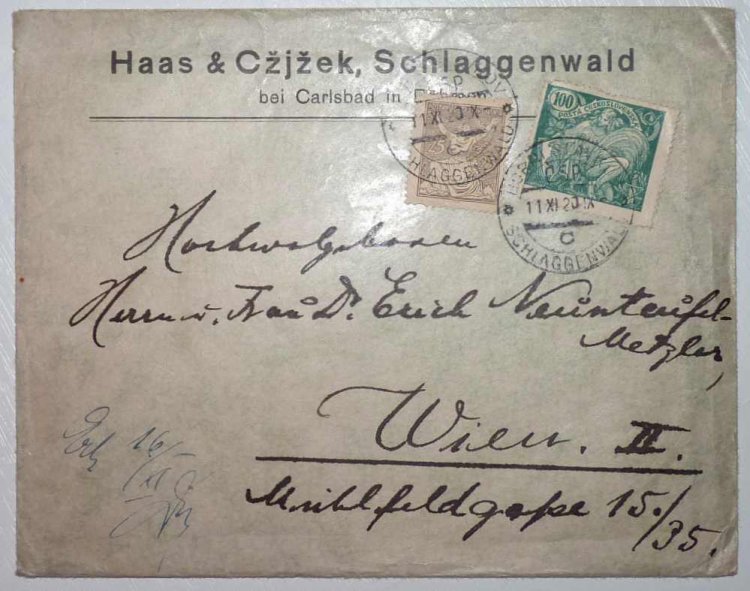 Haas & Cžjžek, Schlaggenwald
bei Carlsbad in
100
POŠTA ČESKOSLOVENSKÁ
11 XI 20 IX
SCHLAGGENWALD
ČSP
11 XI 20 IX
C
SCHLAGGENWALD
Hochwolgeboren
Herrn u. Frau Dr. Erich Neunteufel-
Metzler,
Wien. II.
Mühlfeldgasse 15./
35.
16/
XI